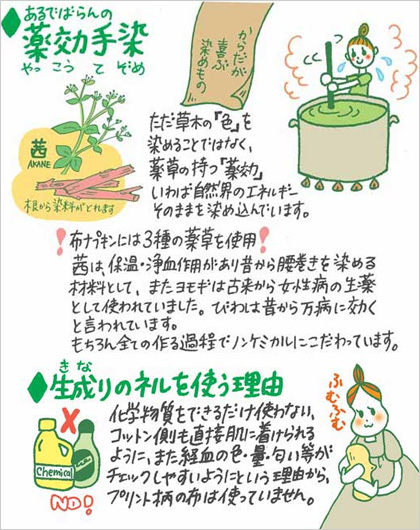 あるでばらんの
薬効手染
やっこうてぞめ
からだが
喜ぶ
染めもの
茜
AKANE
根から染料がとれます
ただ草木の『色』を
染めることではなく、
薬草の持つ『薬効』
いわば自然界のエネルギー
そのままを染め込んでいます。
！布ナプキンには3種の薬草を使用！
茜は、保温・浄血作用があり昔から腰巻きを染める
材料として、またヨモギは古来から女性病の生薬
として使われていました。びわは昔から万病に効く
と言われています。
もちろん全ての作る過程でノンケミカルにこだわっています。
きな
生成りのネルを使う理由
化学物質をできるだけ使わない、
コットン側も直接肌に着けられる
ように、また経血の色・量・匂い等が
チェックしやすいようにという理由から、
プリント柄の布は使っていません。
X
Chemical
NO!
ふむふむ